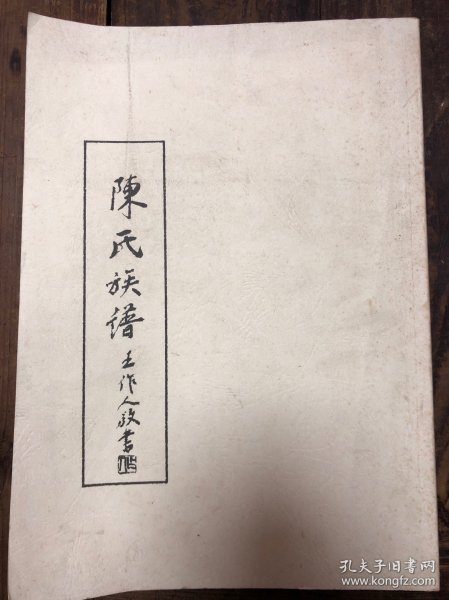 陳氏族譜
王作人敬書
孔夫子旧书网
www.kongfz.com